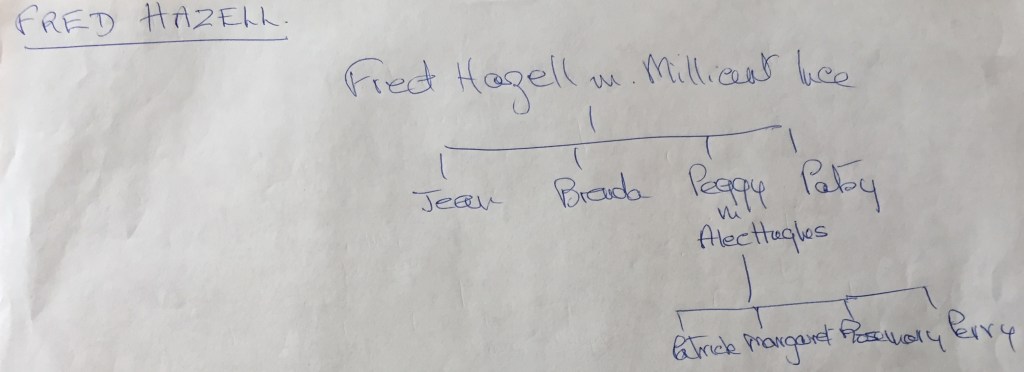 FRED HAZELL.
Fred Hazell m. Millicent Lee
Jean Brenda Peggy Patsy
m
Alec Hughes
Patrick Margaret Rosemary Perry